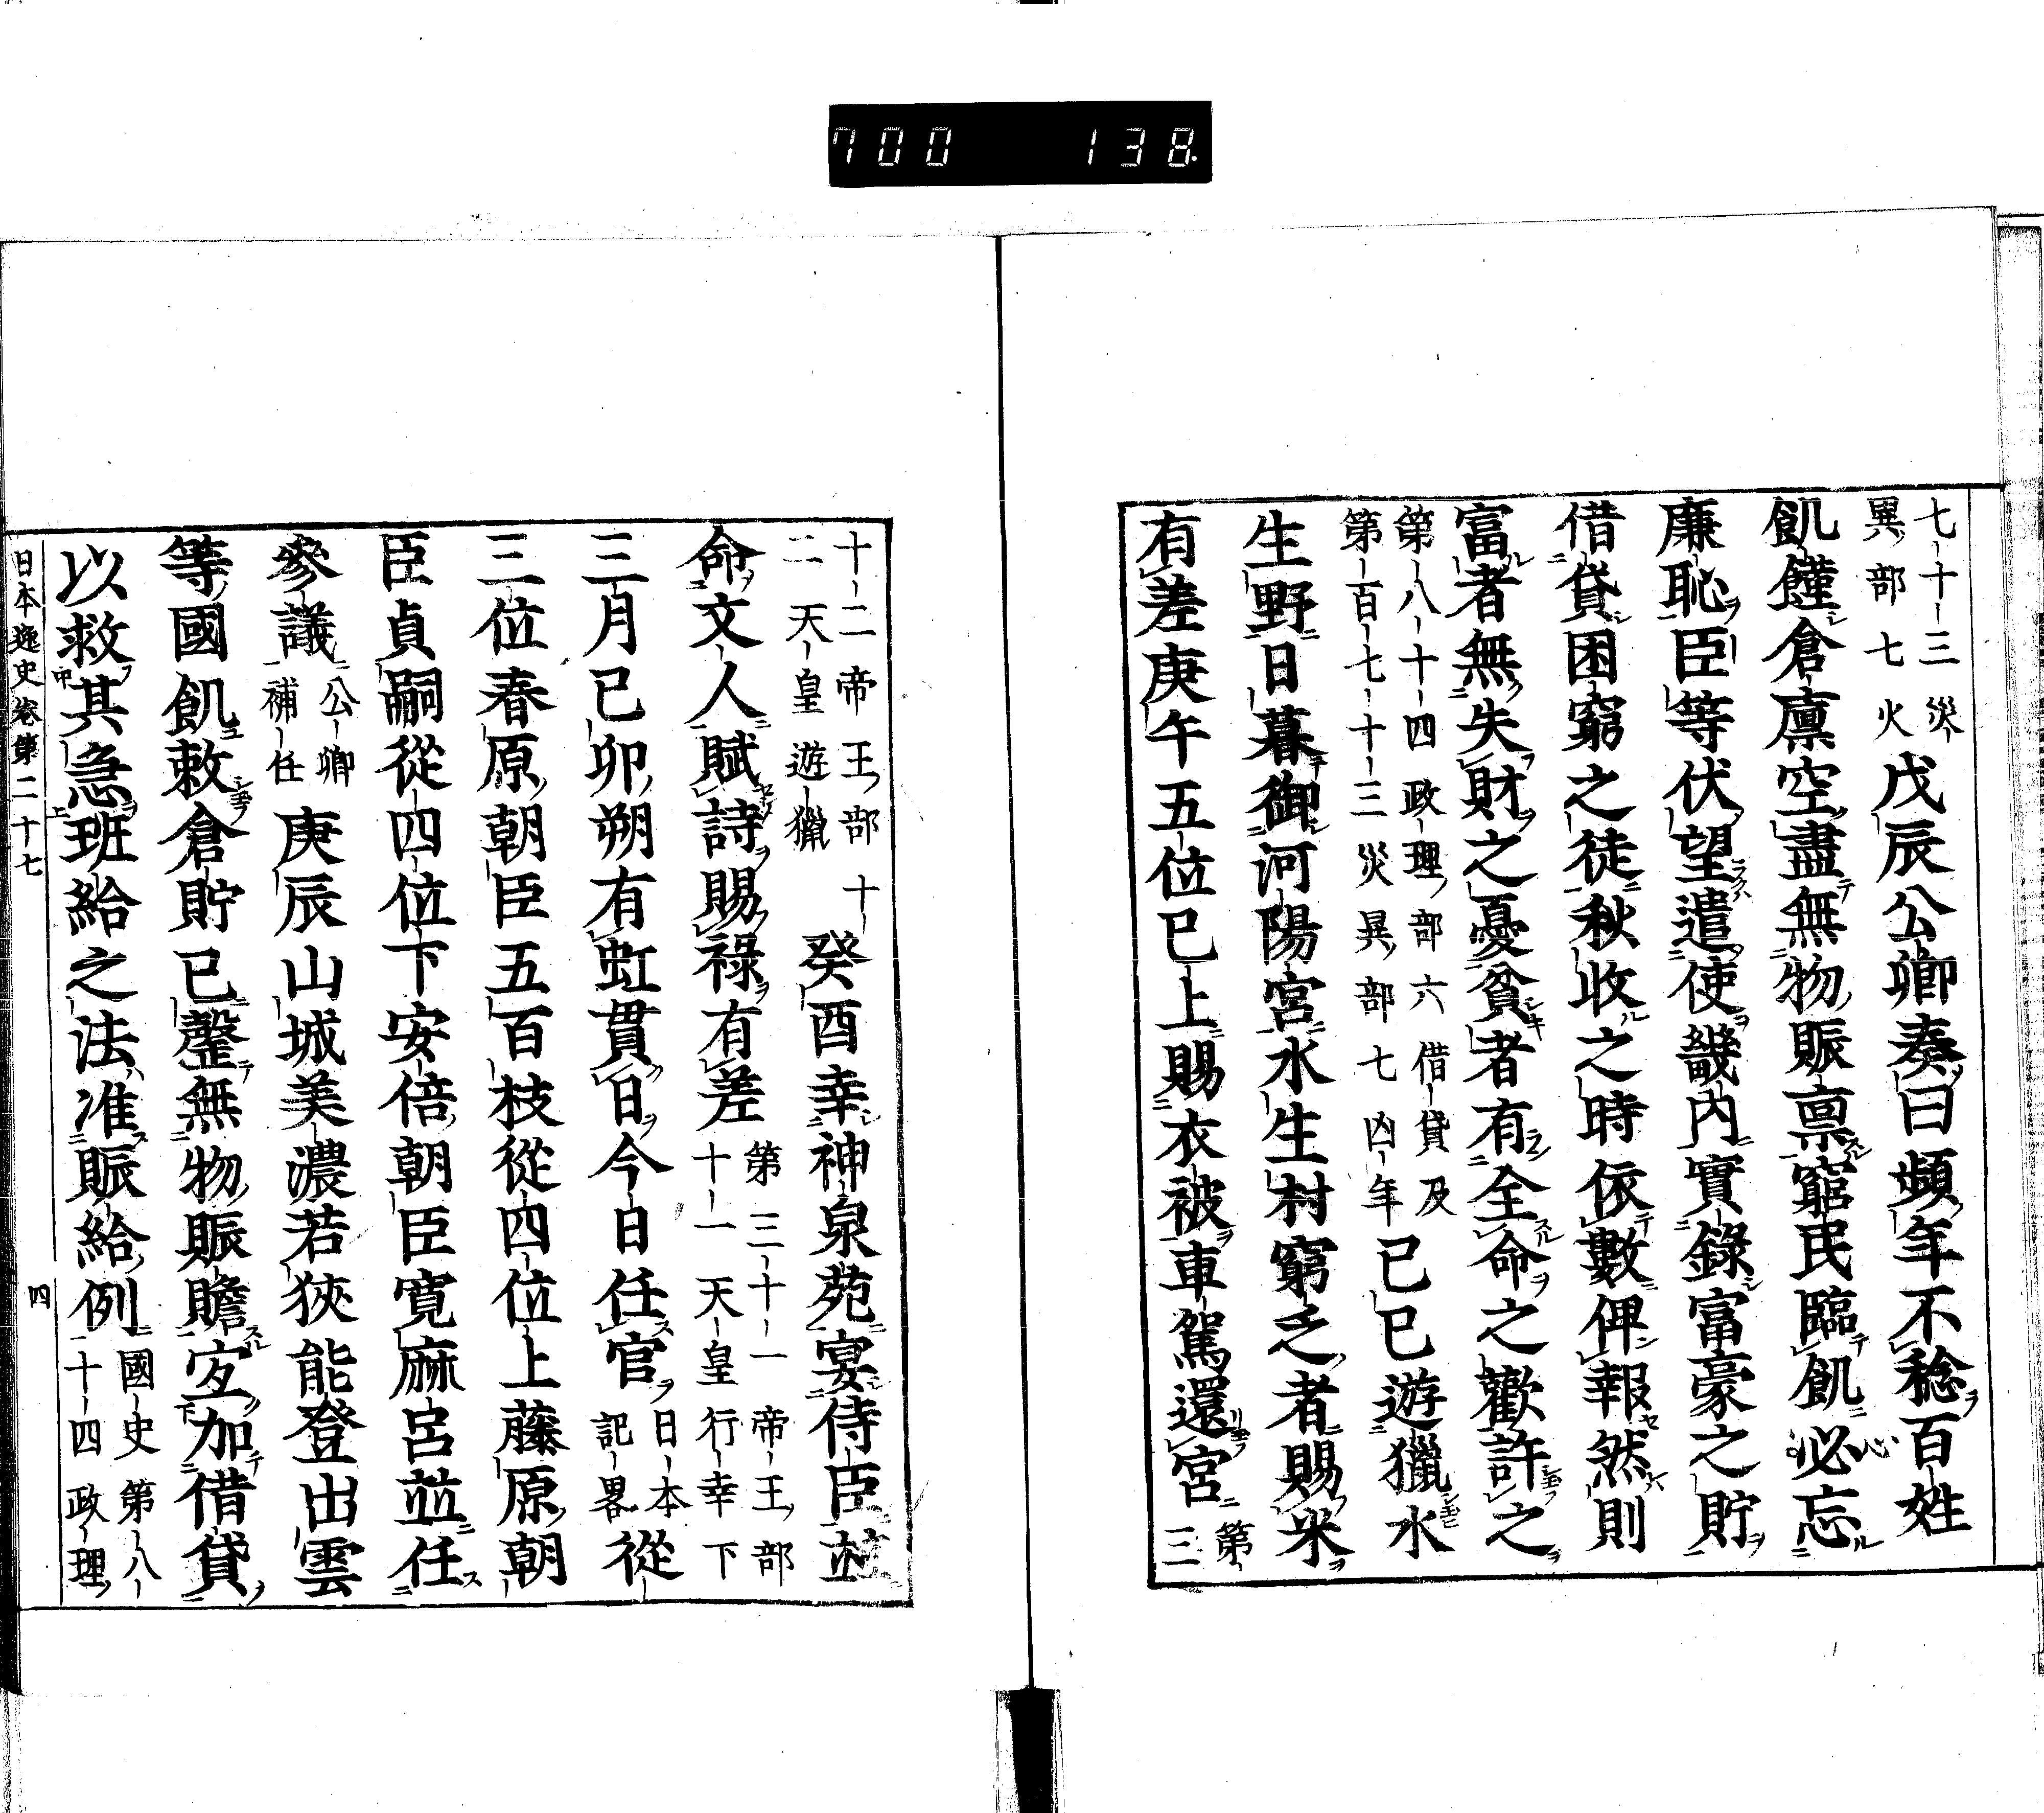 700 138
七十三災
異部七火
戊辰公卿奏曰頻年不稔百姓
飢饉倉廩空盡無物賑稟窮民臨飢必忘
廉恥臣等伏望遣使畿内實錄富豪之貯
借貸困窮之徒秋收之時依數俾報然則
富者無失財之憂貧者有全命之歡許之
第八十四政理部六借貸及
第百七十三災異部七凶年
己巳遊獵水
生野日暮御河陽宮水生村窮乏者賜米
有差庚午五位已上賜衣被車駕還宮
第
三
十二帝王部十
二天皇遊獵
癸酉幸神泉苑宴侍臣並
命文人賦詩賜祿有差
第三十一帝王部
十一天皇行幸下
三月己卯朔有虹貫日今日任官
日本
記畧
從
三位春原朝臣五百枝從四位上藤原朝
臣貞嗣從四位下安倍朝臣寛麻呂並任
參議
公卿
補任
庚辰山城美濃若狹能登出雲
等國飢敕倉貯已罄無物賑贍宜加借貸
以救其急班給之法准賑給例
國史第八
十四政理
日本逸史卷第二十七
四